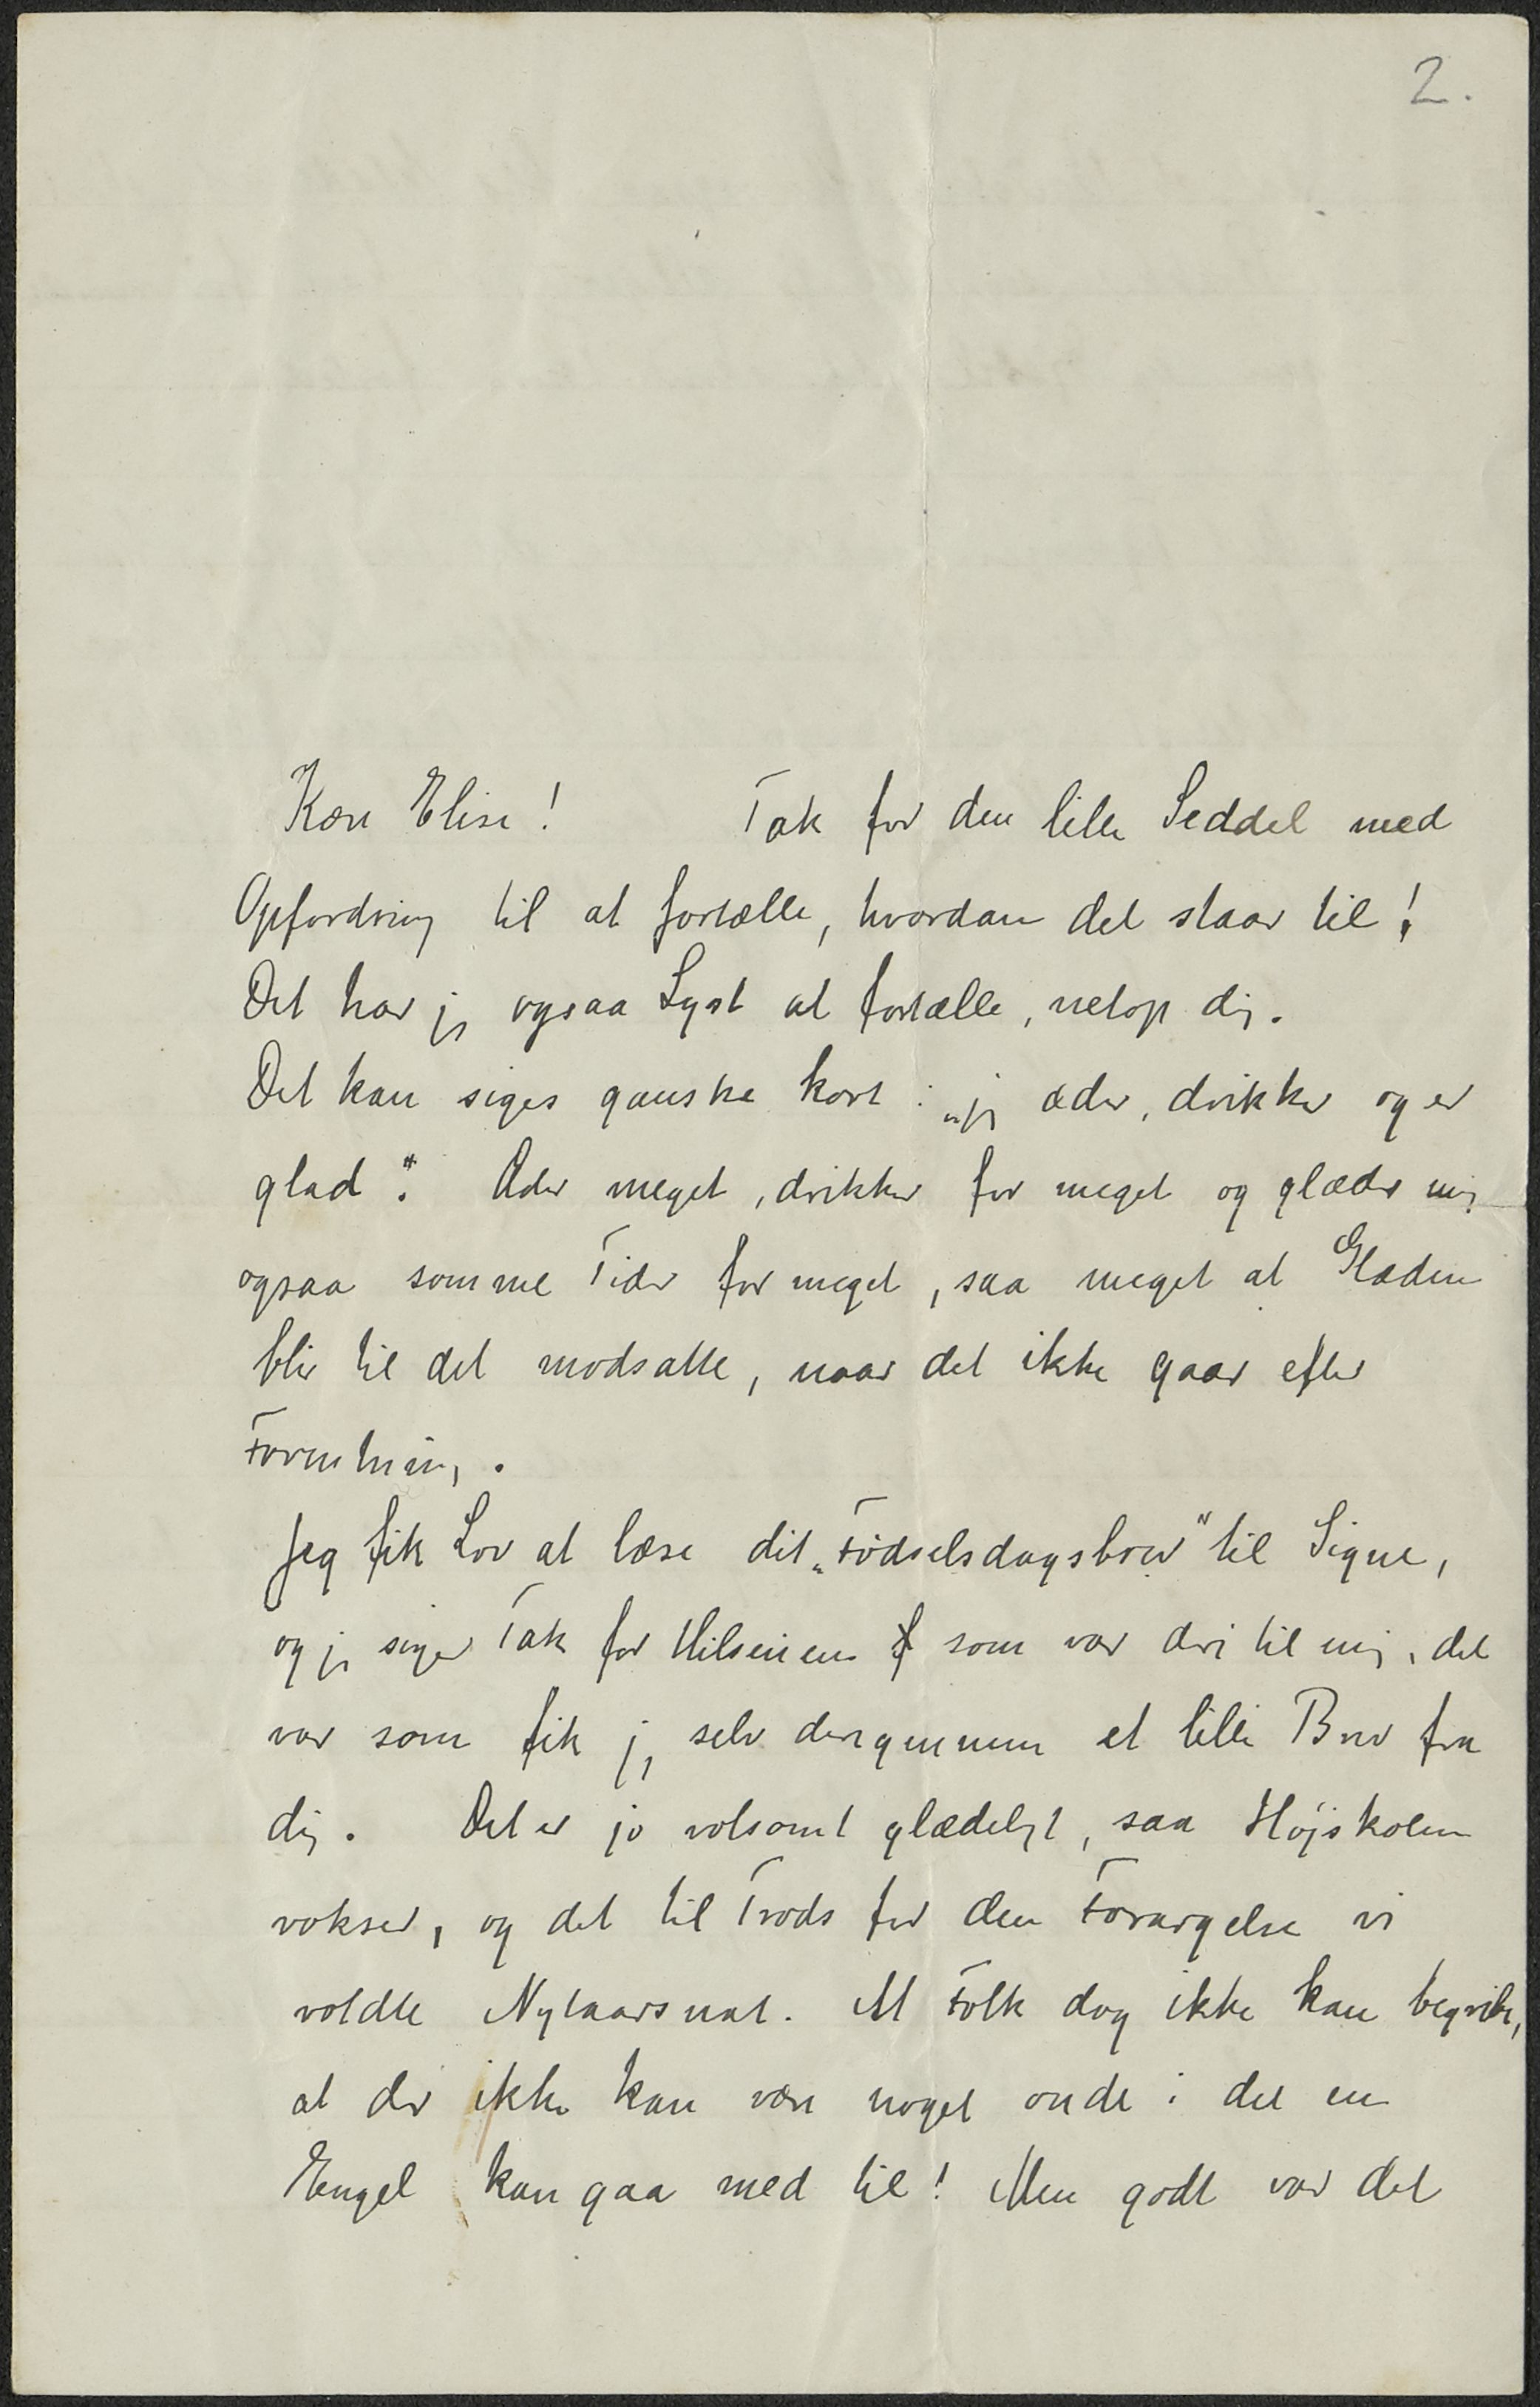 2.
Kære Elise! Tak for den lille Seddel med
Opfordring til at fortælle, hvordan det staar til!
Det har jeg ogsaa Lyst at fortælle, netop dig.
Det kan siges ganske kort: „jeg æder, drikker og er
glad“. Æder meget, drikker for meget og glæder mig
ogsaa somme Tider for meget, saa meget at Glæden
blir til det modsatte, naar det ikke gaar efter
Forventning.
Jeg fik Lov at læse dit „Fødselsdagsbrev“ til Signe,
og jeg siger Tak for Hilsenen som var deri til mig, det
var som fik jeg selv derigennem et lille Brev fra
dig. Det er jo voldsomt glædeligt, saa Højskolen
vokser, og det til Trods for den Forargelse vi
voldte Nytaarsnat. At Folk dog ikke kan begribe,
at der ikke kan være noget ondt i det en
Engel kan gaa med til! Men godt var det